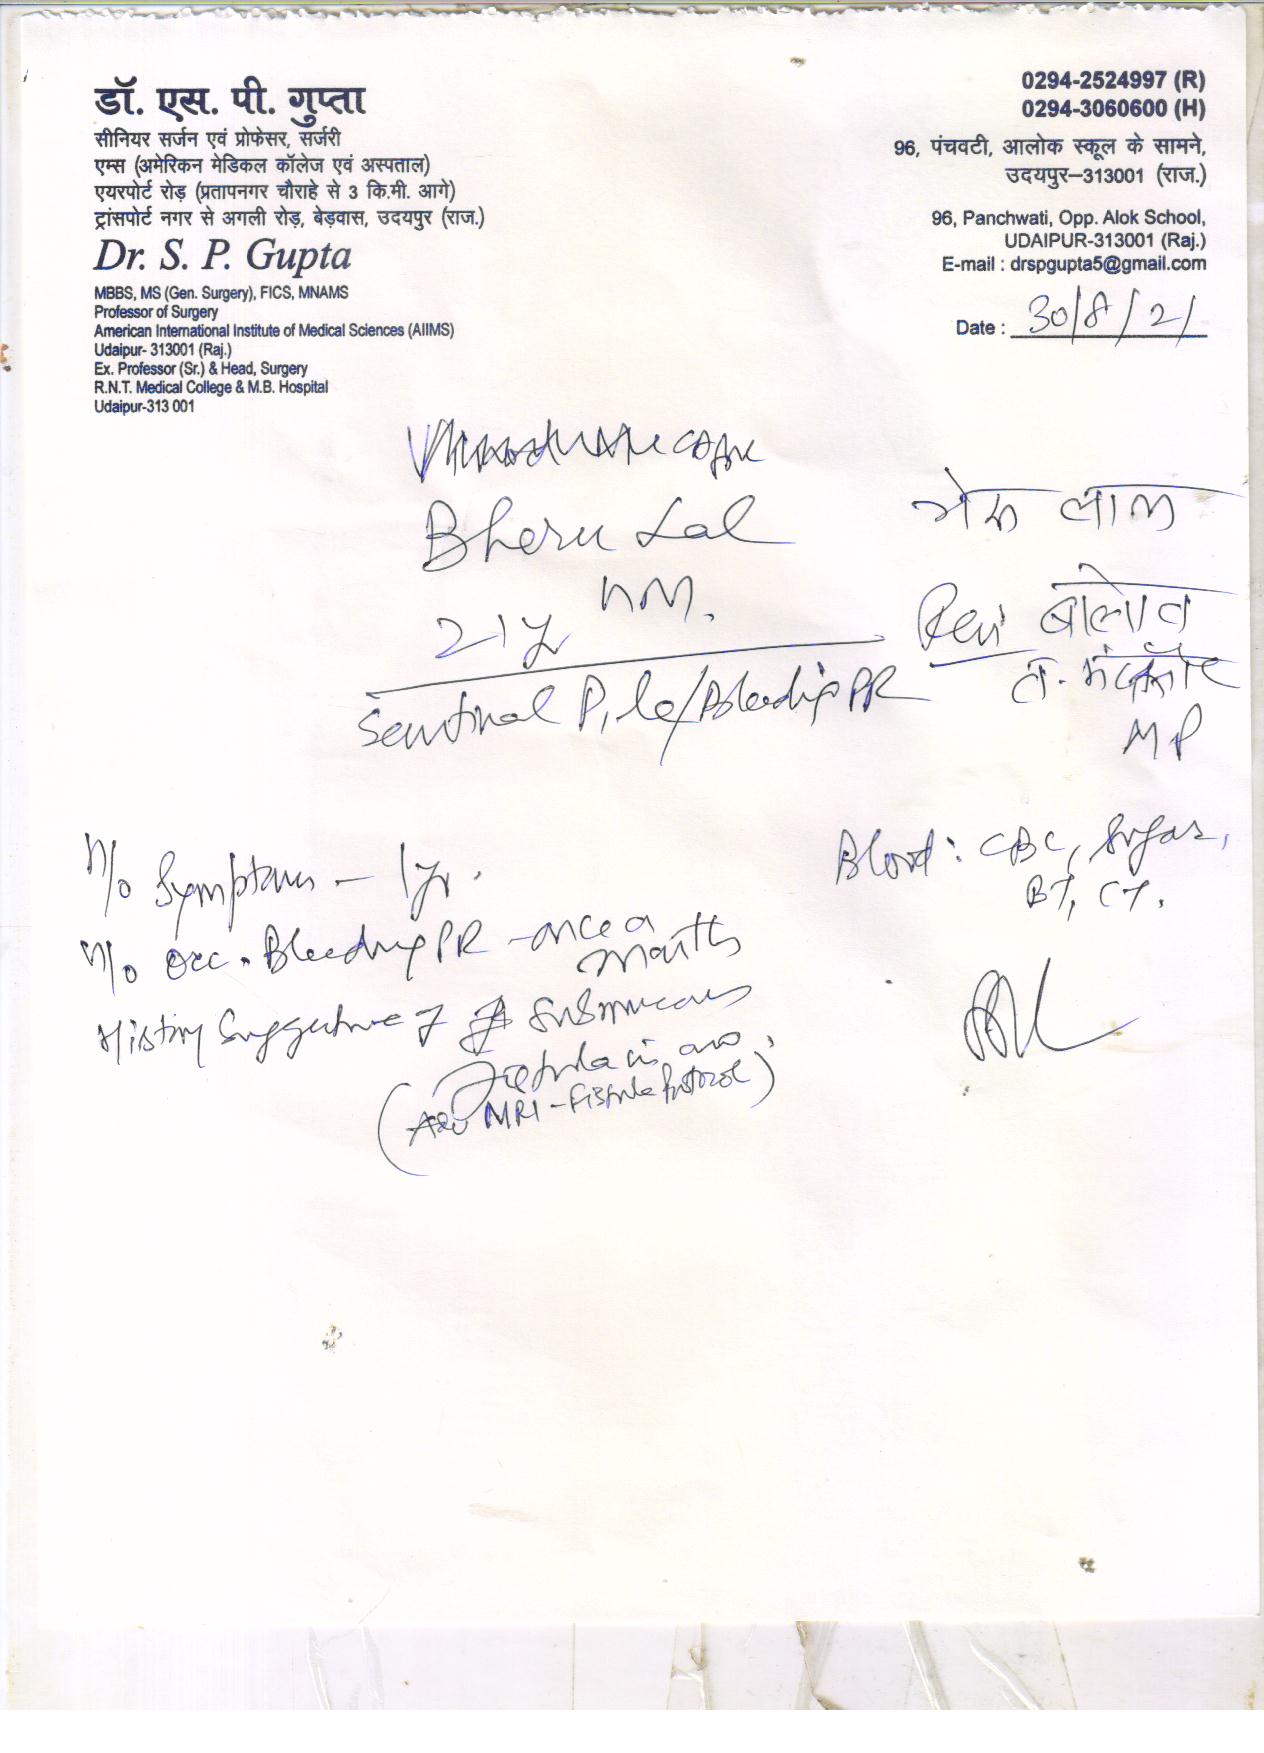 डॉ. एस. पी. गुप्ता
सीनियर सर्जन एवं प्रोफेसर, सर्जरी
एम्स (अमेरिकन मेडिकल कॉलेज एवं अस्पताल)
एयरपोर्ट रोड़ (प्रतापनगर चौराहे से 3 कि.मी. आगे)
ट्रांसपोर्ट नगर से अगली रोड़, बेड़वास, उदयपुर (राज.)
Dr. S. P. Gupta
MBBS, MS (Gen. Surgery), FICS, MNAMS
Professor of Surgery
American International Institute of Medical Sciences (AIIMS)
Udaipur- 313001 (Raj.)
Ex. Professor (Sr.) & Head, Surgery
R.N.T. Medical College & M.B. Hospital
Udaipur-313 001
0294-2524997 (R)
0294-3060600 (H)
96, पंचवटी, आलोक स्कूल के सामने,
उदयपुर–313001 (राज.)
96, Panchwati, Opp. Alok School,
UDAIPUR-313001 (Raj.)
E-mail : drspgupta5@gmail.com
Date : 30/8/21
Bheru Lal
21y
लाल
MP
Sentinal Pile/Bleeding PR
H/o Symptoms - 1yr.
H/o Occ. Bleeding PR - once a
month
History Suggestive of Submucous
Fistula in ano.
(Adv MRI - Fistula Protocol)
Blood: CBC, Sugar,
BT, CT.